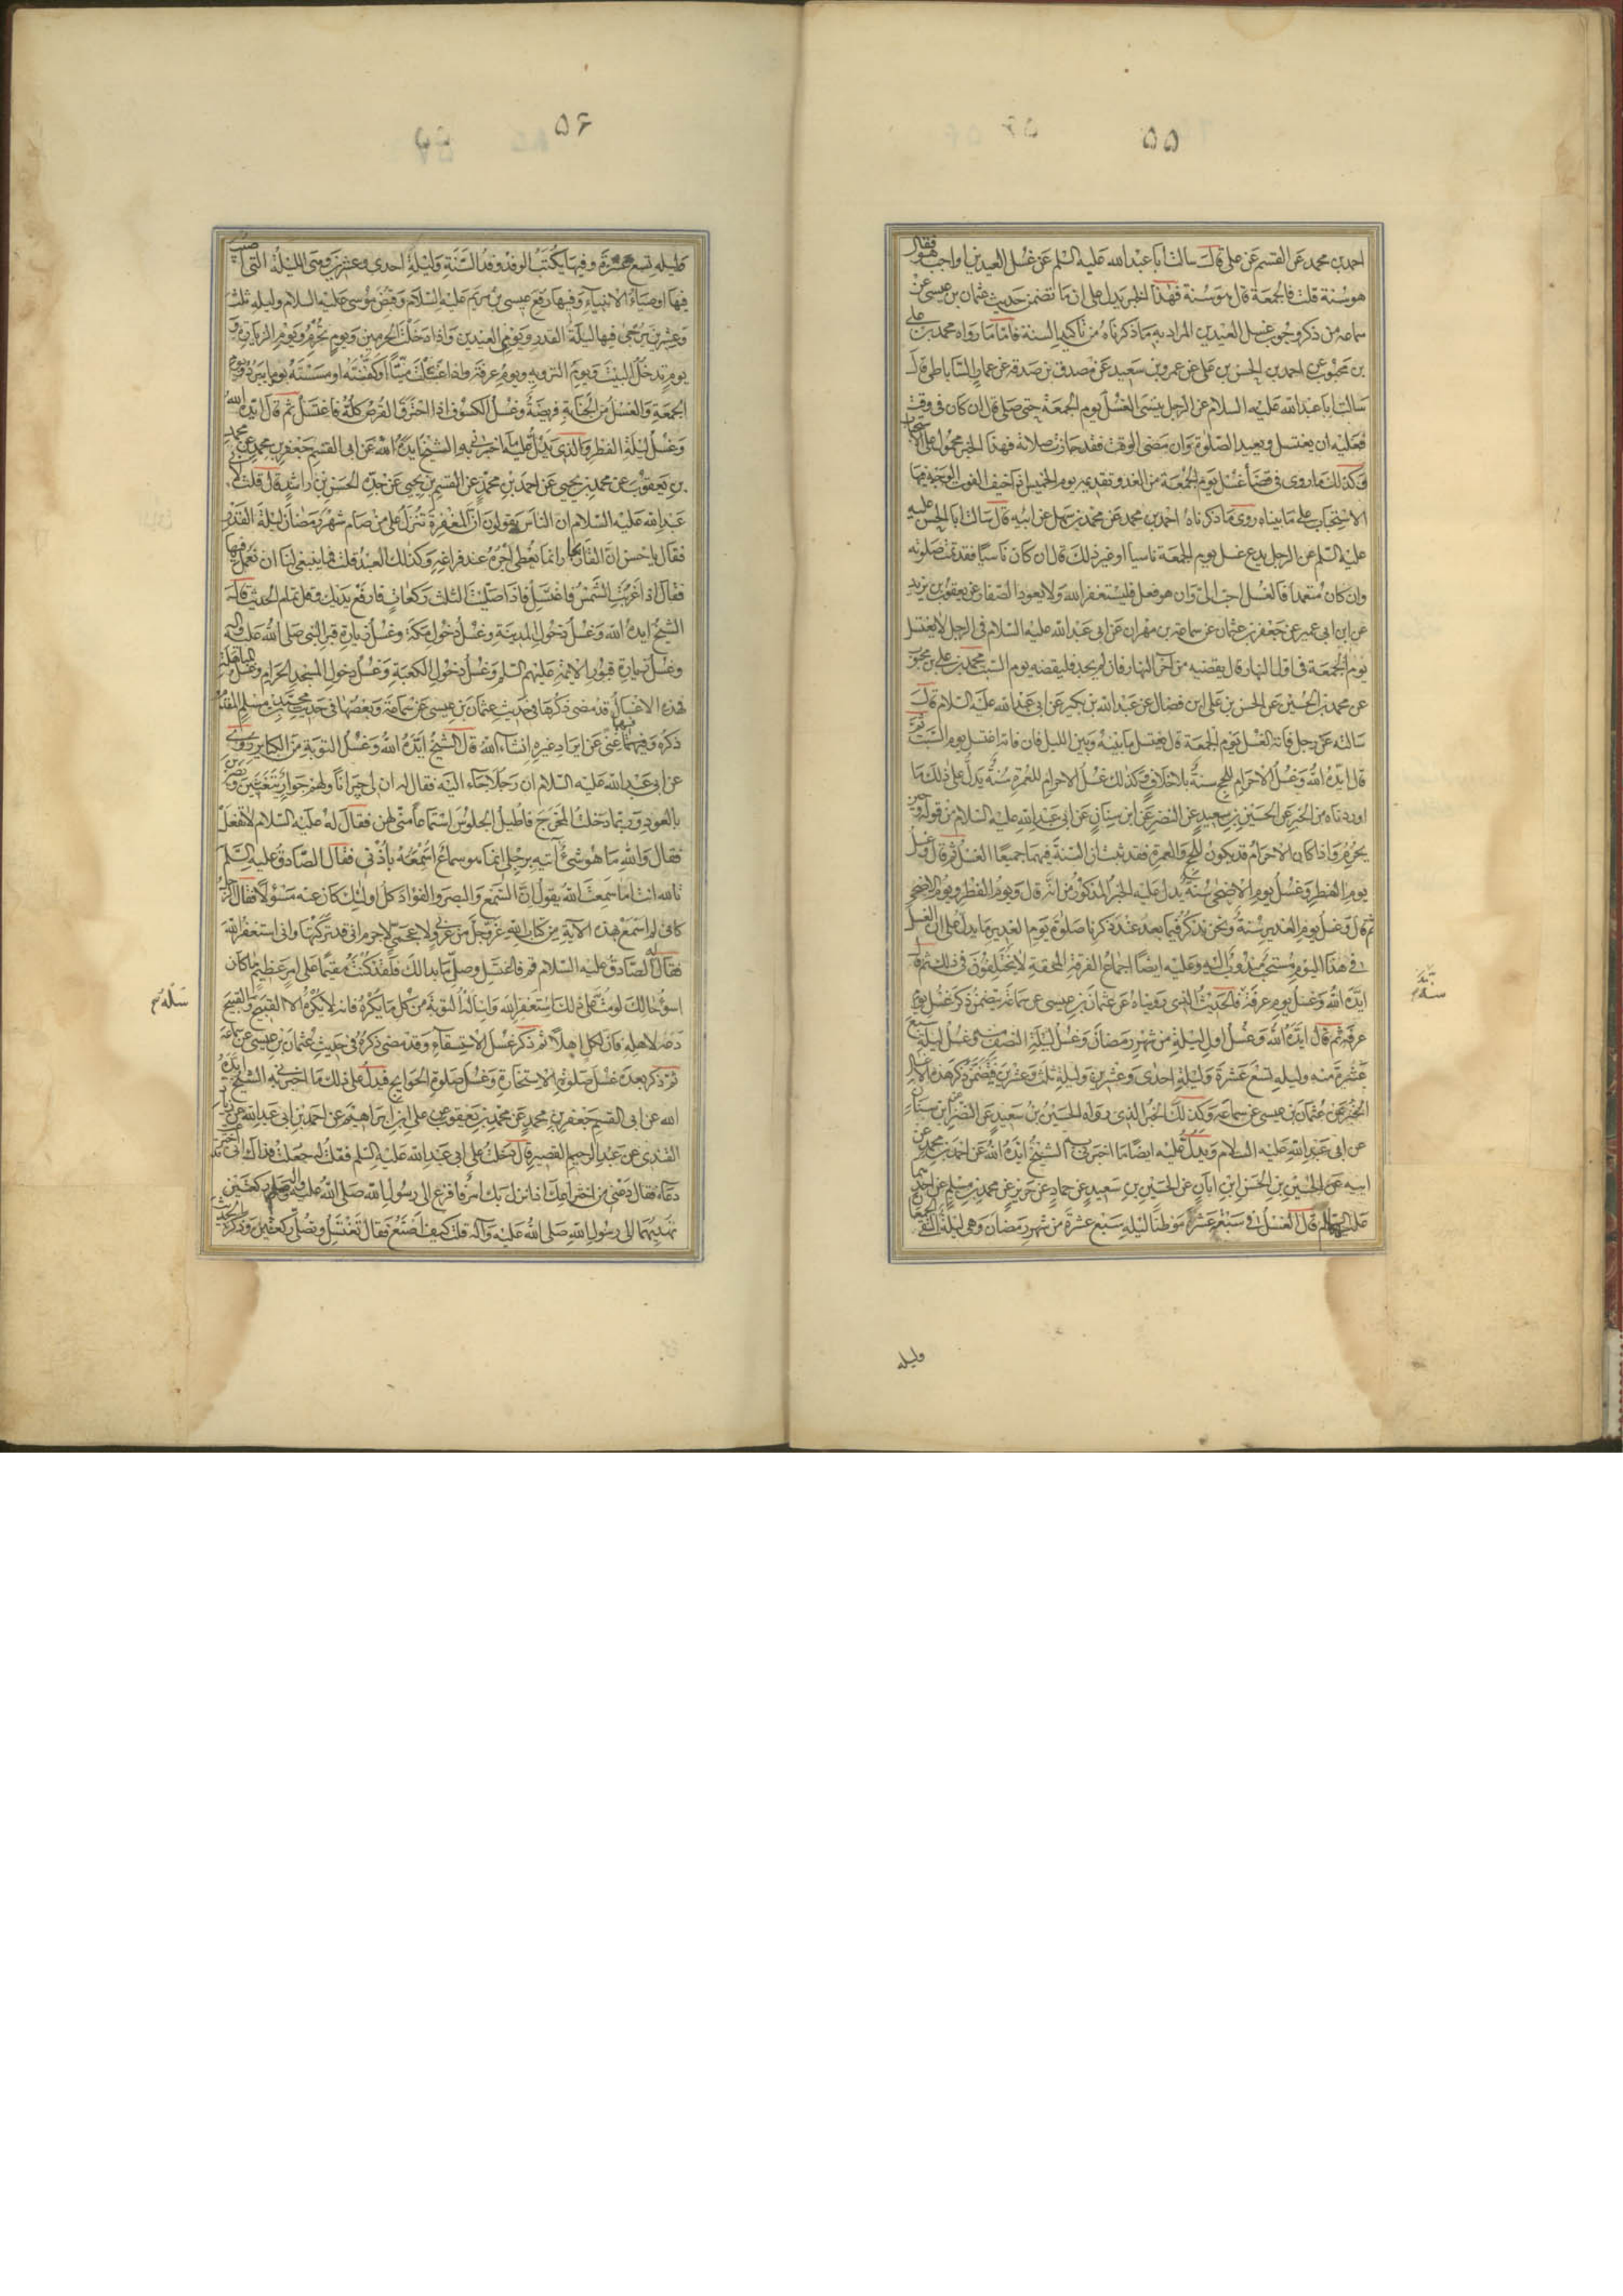 ۵۵
احمد بن محمد عن القسم عن علي قال سالت ابا عبد الله عليه السلم عن غسل العيدين اواجب هو فقال
هو سنة قلت فالجمعة قال هو سنة فهذا الخبر يدل على ان ما تضمن حديث عثمان بن عيسى عن
سماعه من ذكر وجوب غسل العيدين المراد به ما ذكرناه من تاكيد السنة فاما ما رواه محمد بن علي
بن محبوب عن احمد بن الحسن بن علي عن عمرو بن سعيد عن مصدق بن صدقه عن عمار الساباطي قال
سالت ابا عبد الله عليه السلام عن الرجل ينسى الغسل يوم الجمعة حتى صلى قال ان كان في وقت
فعليه ان يغتسل ويعيد الصلوة وان مضى الوقت فقد جازت صلاته فهذا الخبر محمول على الاستحباب
وكذلك ما روى في قضاء غسل يوم الجمعة من الغد وتقديمه يوم الخميس اذا خيف الفوت الوجه فيها
الاستحباب على ما بيناه روى ما ذكرناه احمد بن محمد عن محمد بن سهل عن ابيه قال سالت ابا الحسن عليه
عليه السلم عن الرجل يدع غسل يوم الجمعة ناسيا او غير ذلك قال ان كان ناسيا فقد تمت صلوته
وان كان متعمدا فالغسل احب الى وان هو فعل فليستغفر الله ولا يعود الصفار عن يعقوب بن يزيد
عن ابن ابي عمير عن جعفر بن عثمان عن سماعه بن مهران عن ابي عبد الله عليه السلام في الرجل لا يغتسل
يوم الجمعة في اول النهار قال يقضيه من آخر النهار فان لم يجد فليقضه يوم السبت محمد بن علي بن محبوب
عن محمد بن الحسين عن الحسن بن علي ابن فضال عن عبد الله بن بكير عن ابي عبد الله عليه السلام قال
سالته عن رجل فاته الغسل يوم الجمعة قال يغتسل ما بينه وبين الليل فان فاته اغتسل يوم السبت ثم
قال ايده الله وغسل الاحرام للحج سنة بلا خلاف وكذلك غسل الاحرام للعمرة سنة يدل على ذلك ما
اوردناه من الخبر عن الحسين بن سعيد عن النضر عن ابن سنان عن ابي عبد الله عليه السلام من قوله وحين
يحرم واذا كان الاحرام قد يكون للحج والعمرة فقد ثبت ان السنة فيهما جميعا الغسل ثم قال وغسل
يوم الفطر وغسل يوم الاضحى سنة يدل عليه الخبر المذكور من انه قال ويوم الفطر ويوم الاضحى
ثم قال وغسل يوم الغدير سنة ونحن نذكر فيما بعد عند ذكرنا صلوة يوم الغدير ما يدل على ان الغسل
في هذا اليوم مستحب مندوب اليه وعليه ايضا اجماع الفرقة المحقة لا يختلفون في ذلك ثم قال
ايده الله وغسل يوم عرفة فالحديث الذي رويناه عن عثمان بن عيسى عن سماعه يتضمن ذكر غسل يوم
عرفة ثم قال ايده الله وغسل اول ليلة من شهر رمضان وغسل ليلة النصف منه وغسل ليلة سبع
عشرة منه وليله تسع عشرة وليلة احدى وعشرين وليلة ثلث وعشرين فتضمن ذكر هذه الاغسال
الخبر عن عثمان بن عيسى عن سماعه وكذلك الخبر الذي رواه الحسين بن سعيد عن النضر عن ابن سنان
عن ابي عبد الله عليه السلام ويدل عليه ايضا ما اخبرني به الشيخ ايده الله عن احمد بن محمد عن
ابيه عن الحسين بن الحسن ابن ابان عن الحسين بن سعيد عن حماد عن حريز عن محمد بن مسلم عن احدهما
عليهما السلام قال الغسل في سبعة عشر موطنا ليله سبع عشرة من شهر رمضان وهي ليلة التقى الجمعان
وليله
۵۶
وليله تسع عشرة وفيها يكتب الوفد وفد السنة وليلة احدى وعشرين وهي الليلة التي اصيب
فيها اوصياء الانبياء وفيها رفع عيسى بن مريم عليه السلام وقبض موسى عليه السلام وليله ثلث
وعشرين يرجى فيها ليلة القدر ويومي العيدين واذا دخلت الحرمين ويوم تحرم ويوم الزيارة و
يوم تدخل البيت ويوم التروية ويوم عرفة واذا غسلت ميتا او كفنته او مسسته بعد ما يبرد ويوم
الجمعة والغسل من الجنابة فريضة وغسل الكسوف اذا احترق القرص كله فاغتسل ثم قال ايده الله
وغسل ليلة الفطر والذي يدل عليه ما اخبرني به الشيخ ايده الله عن ابي القسم جعفر بن محمد عن محمد
بن يعقوب عن محمد بن يحيى عن احمد بن محمد عن القسم بن يحيى عن جده الحسن بن راشد قال قلت لابي
عبد الله عليه السلام ان الناس يقولون ان المغفرة تنزل على من صام شهر رمضان ليلة القدر
فقال يا حسن ان القاريجار انما يعطى اجره عند فراغه وكذلك العبد قلت فما ينبغي لنا ان نعمل فيها
فقال اذا غربت الشمس فاغتسل فاذا صليت الثلث ركعات فارفع يديك وقل تمام الحديث قال
الشيخ ايده الله وغسل دخول المدينة وغسل دخول مكة وغسل زيارة قبر النبي صلى الله عليه وآله
وغسل زيارة قبور الائمة عليهم السلم وغسل دخول الكعبة وغسل دخول المسجد الحرام وغسل المباهلة
فهذه الاغسال قد مضى ذكرها في حديث عثمان بن عيسى عن سماعة وبعضها في حديث محمد بن مسلم المتقدم
ذكره وفيهما غنى عن ايراد غيره انشاء الله قال الشيخ ايده الله وغسل التوبة من الكباير روى
عن ابي عبد الله عليه السلام ان رجلا جاء اليه فقال له ان لي جيرانا ولهم جوار يتغنين ويضربن
بالعود وربما دخلت المخرج فاطيل الجلوس استماعا مني لهن فقال له عليه السلام لا تفعل
فقال والله ما هو شئ آتيه برجلي انما هو سماع اسمعه باذني فقال الصادق عليه السلم
تالله انت اما سمعت الله يقول ان السمع والبصر والفؤاد كل اولئك كان عنه مسؤلا فقال الرجل
كاني لم اسمع بهذه الآية من كتاب الله عز وجل من عربي ولا عجمي لا جرم اني قد تركتها واني استغفر الله
فقال له الصادق عليه السلام قم فاغتسل وصل ما بدا لك فلقد كنت مقيما على امر عظيم ما كان
اسؤ حالك لو مت على ذلك استغفر الله واساله التوبة من كل ما يكره فانه لا يكره الا القبيح والقبيح
دعه لاهله فان لكل اهلا ثم ذكر غسل الاستسقاء وقد مضى ذكره في حديث عثمان بن عيسى عن سماعة
ثم ذكر بعده غسل صلوة الاستخارة وغسل صلوة الحوايج فيدل على ذلك ما اخبرني به الشيخ ايده
الله عن ابي القسم جعفر بن محمد عن محمد بن يعقوب عن علي ابن ابراهيم عن احمد بن ابي عبد الله عن زياد
القندي عن عبد الرحيم القصير قال دخلت على ابي عبد الله عليه السلم فقلت له جعلت فداك اني اخترعت
دعاء فقال دعني من اختراعك اذا نزل بك امر فافزع الى رسول الله صلى الله عليه وآله وصل ركعتين
تهديهما الى رسول الله صلى الله عليه وآله قلت كيف اصنع فقال تغتسل وتصلي ركعتين وذكر الحديث